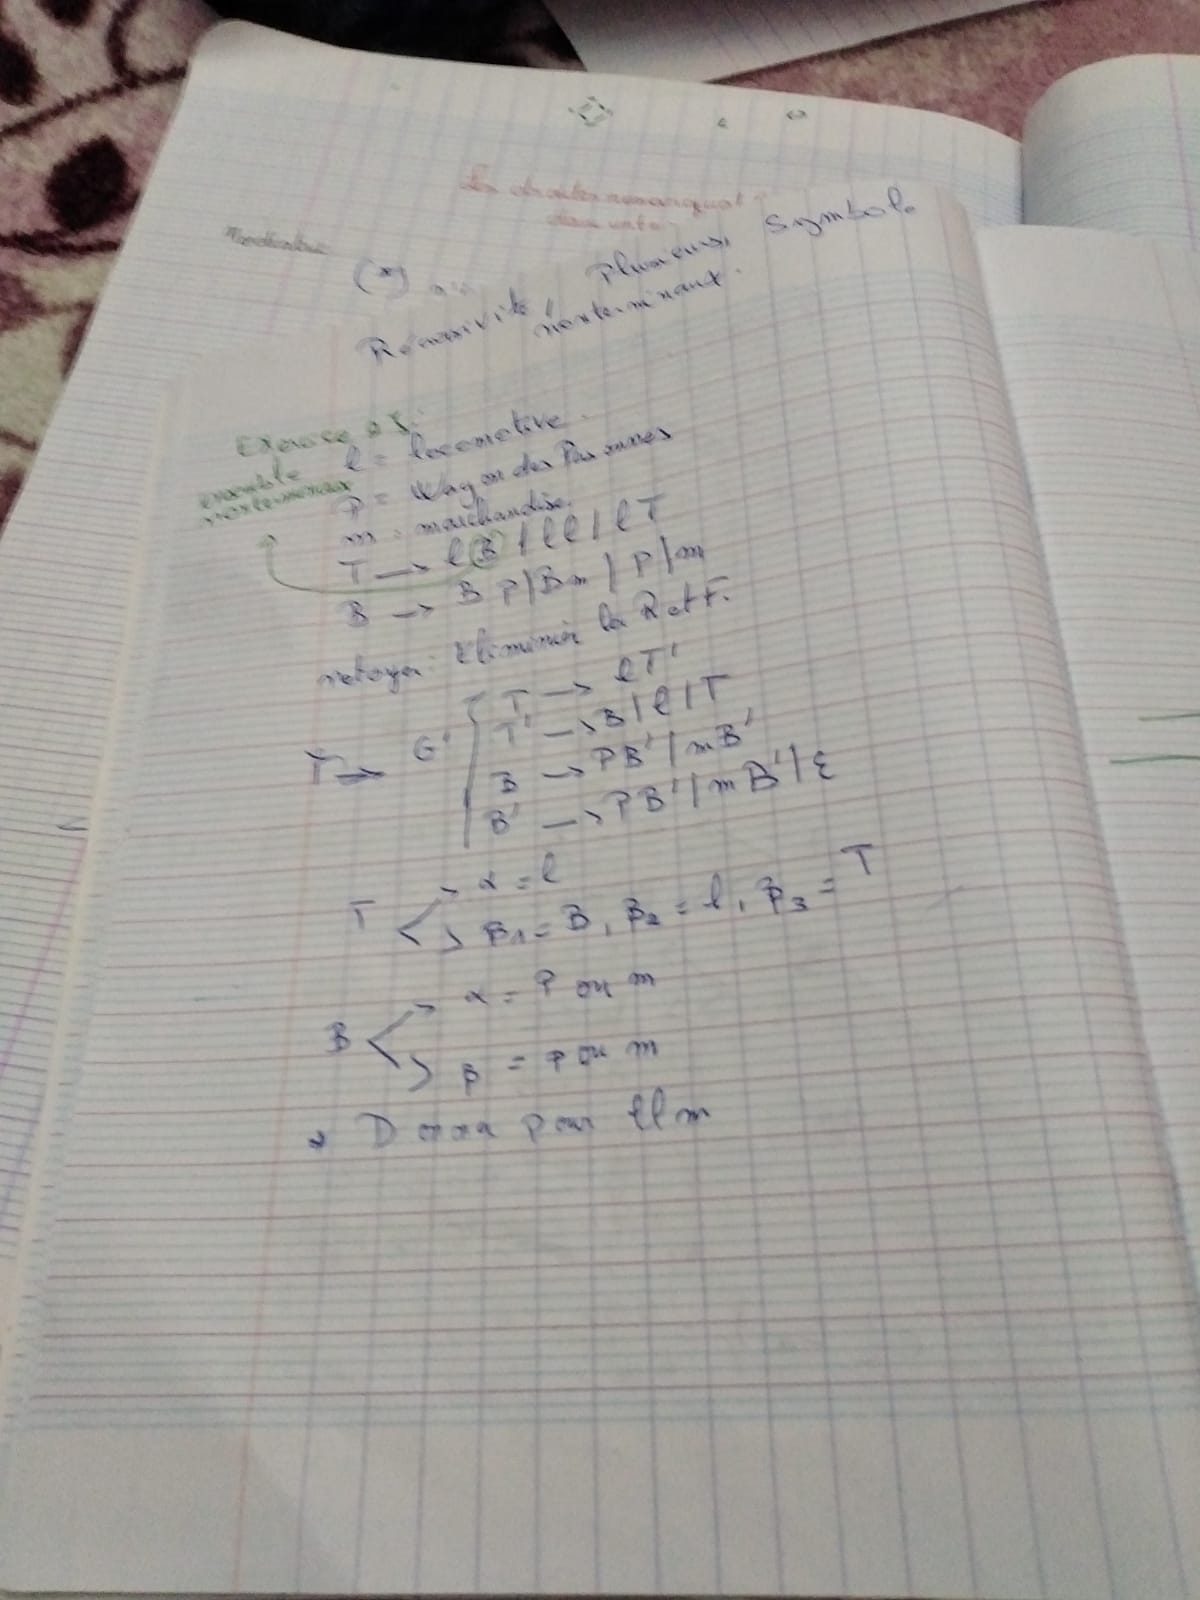 Les droites remarquabl
dans un
(*)
Récursivité Plusieurs Symbole
nonterminaux.
Exercice 25:
ensemble
nonterminaux
l = locomotive.
P = Wagon des Personnes
m = marchandise.
T → lB | ll | lT
B → BP | Bm | P | m
netoyer: Eliminer la R et F.
T → G' { T → lT'
T' → B | l | T
B → PB' | mB'
B' → PB' | mB' | ε
T < α = l
β1 = B, β2 = l, β3 = T
B < α = P ou m
β = P ou m
2 pour llm